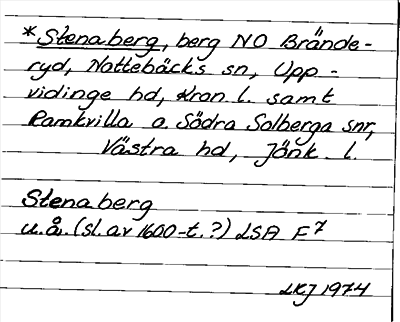 *Stenaberg, berg NO Brände-
ryd, Nottebäcks sn, Upp-
vidinge hd, Kron. l. samt
Ramkvilla o. Södra Solberga snr,
Västra hd, Jönk. l.
Stenaberg
u.å. (sl. av 1600-t.?) LSA F7
LKJ 1974